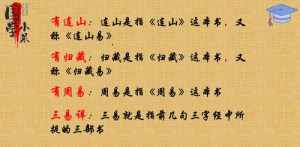 国学
小菜
有连山：连山是指《连山》这本书，又
称《连山易》
有归藏：归藏是指《归藏》这本书，又
称《归藏易》
有周易：周易是指《周易》这本书
三易详：三易就是指前几句三字经中所
提的三部书